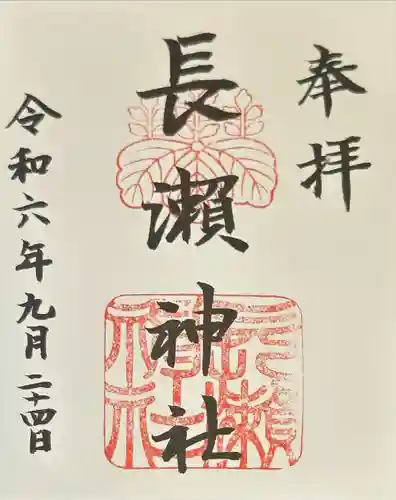 奉拝
長瀬神社
令和六年九月二十四日